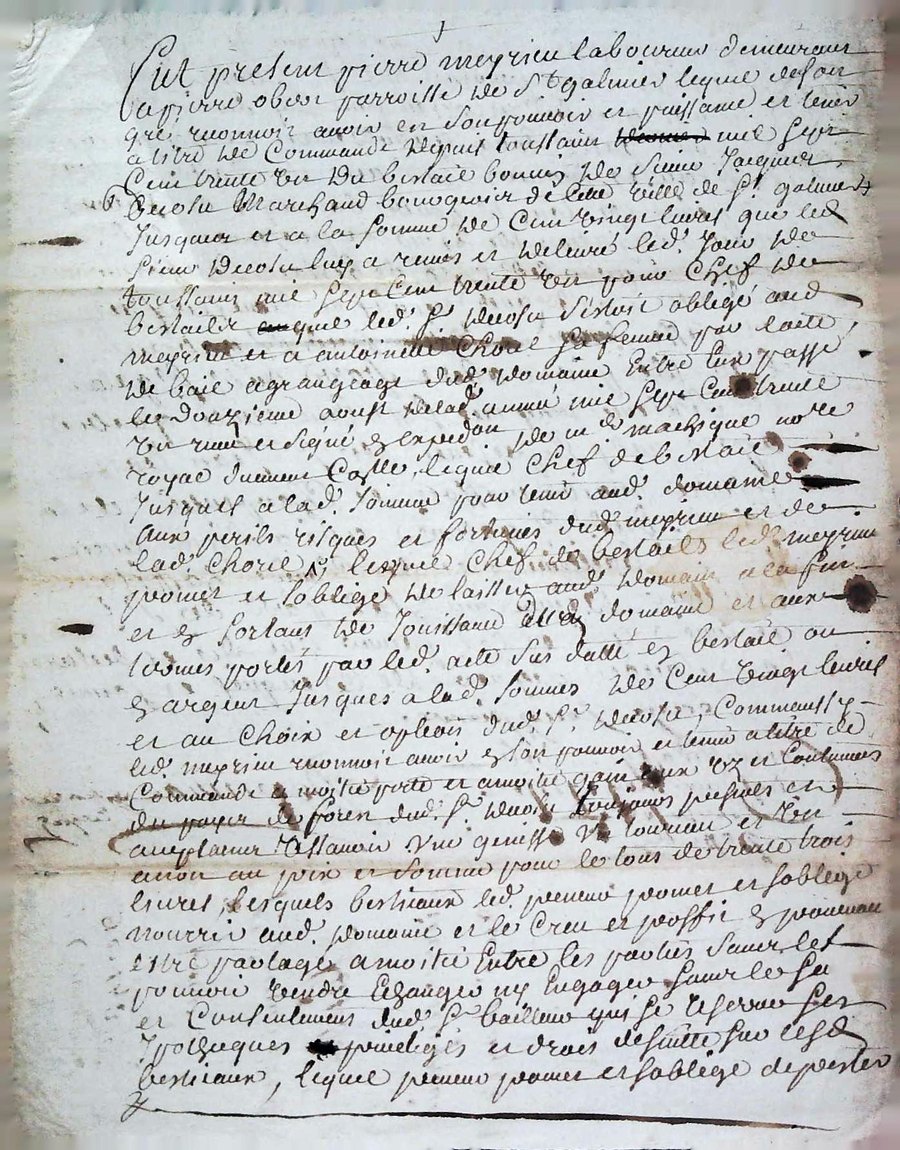 Fut présent pierre meyrieu laboureur demeurant
a pierre obost parroisse de St galmier lequel de son
gré reconnoit avoir en son pouvoir et puissance et tenir
a titre de Commande depuis toussains mil sept
Cent trente un du bestail bouvis de sieur Jacques
marchand bourgeois de cette ville de St galmier
Jusques et a la somme de Cent vingt livres que led
sieur luy a remis et delivré led. Jour de
toussains mil sept Cent trente un pour Chef de
bestails que led. Sr s'estoit obligé aud
meyrieu et a antoinette Chorel sa femme par l'acte
de bail a grangeage dud. domaine Entre Eux passé
le douzieme aoust de lad. année mil sept Cent trente
un receu et signé expedon de me machique nore
royal lequel Chef de bestail
Jusques a lad. somme pour tenir aud. domaine
aux perils risques et fortunes dud. meyrieu et de
lad. Chorel, lequel Chef de bestails led. meyrieu
promet et s'oblige de laisser aud. domaine a la fin
et sortant de Joüissance dud. domaine et aux
termes portés par led. acte sus datté en bestail ou
en argent Jusques a lad. somme de Cent vingt livres
et au Choix et option dud. Sr Comm'aussy
led. meyrieu reconnoit avoir en son pouvoir et tenir a titre de
Commande a moitié perte et a moitié gain aux us et Coutumes
du payis de forest dud. Sr toujours present et
acceptant scavoir une genisse un toureau et un
au prix et somme pour le tout de trente trois
livres, lesquels bestiaux led. preneur promet et s'oblige
nourrir aud. domaine et le Creu et proffit en provenant
estre partagé a moitié Entre les parties sans les
pouvoir vendre Echanger ny Engager sans le sçu
et Consentement dud. Sr bailleur qui se reserve ses
Ipoteques privileges et droit de suitte sur lesd
bestiaux, lequel preneur promet et s'oblige de porter